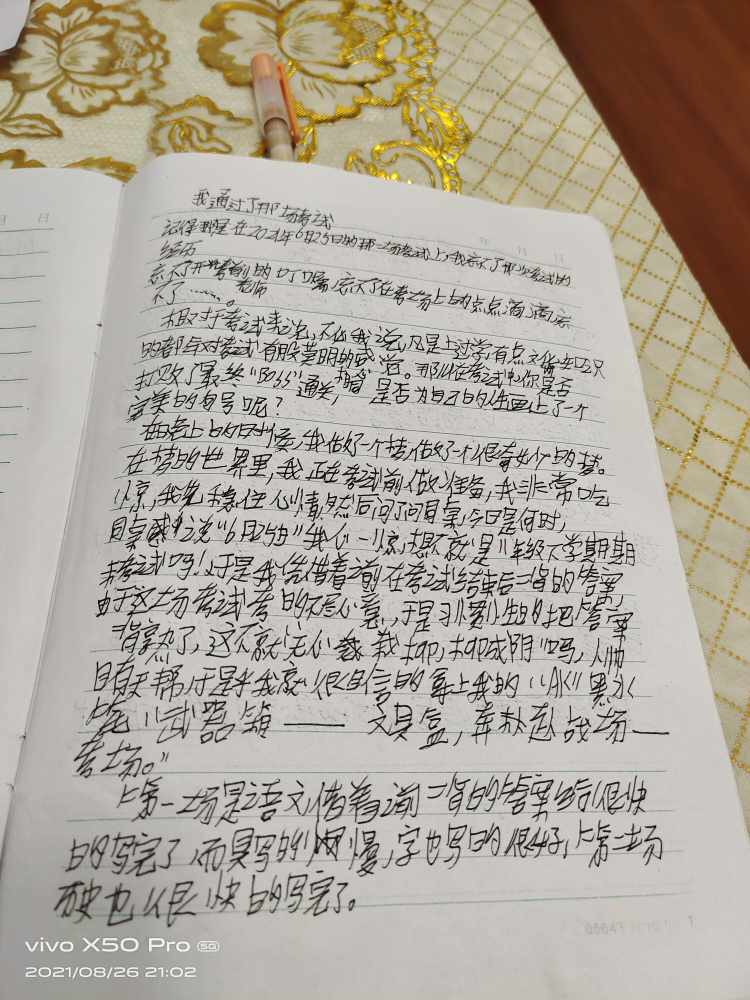 我通过了那场考试
记得那是在2021年6月25日的那一场考试上,我忘不了那次考试的
经历
忘不了开考前的叮嘱,忘不了在考场上的点点滴滴,忘
老师
不了……。
相对于考试来说,不仅我说,凡是上过学,有点文化
的都与对考试有股莫明的感觉。那么在考试中你是否
打败了最终“BOSS”通关,是否为自己的人生画上了一个
完美的句号呢?
在晚上的时候,我做好一个梦,做了一个很奇妙的梦。
在梦的世界里,我正在考试前做准备,我非常吃
惊,我先稳住心情然后问了问同桌,今日是何时,
同桌说“6月25日”我心一惊,想不就是八年级下学期期
末考试吗!于是我凭借着之前在考试结束后背的答案,
由于这场考试考的不尽心意,于是我把答案
背熟了,这不就“无心栽柳,柳成阴”吗,人帅
自有天帮,于是乎我就很自信的拿上我的“AK”黑水
武器箱——文具盒,奔赴战场—
考场。”
第一场是语文借着之前背的答案很快
的写完了,而且写的很慢,字也写的很好,第二场
历史也很快的写完了。
vivo X50 Pro 5G
2021/08/26 21:02